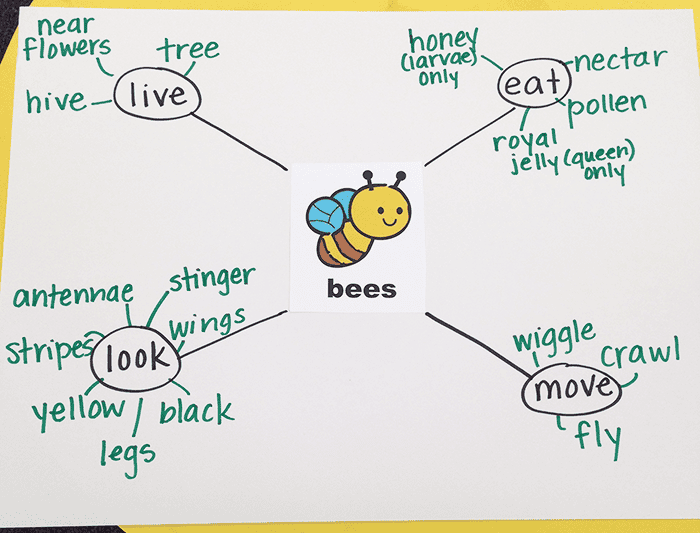 near
flowers
tree
hive
live
honey
(larvae)
only
eat
nectar
pollen
royal
jelly (queen)
only
bees
antennae
stinger
wings
stripes
look
yellow
black
legs
wiggle
crawl
move
fly